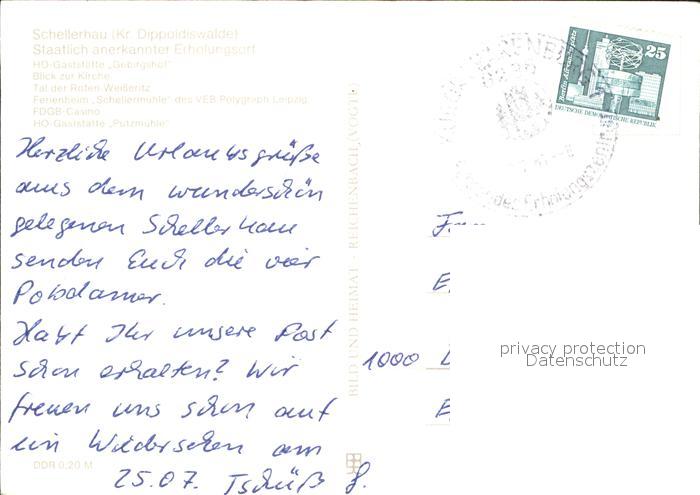 Schellerhau (Kr. Dippoldiswalde)
Staatlich anerkannter Erholungsort
HO-Gaststätte „Gebirgshof"
Blick zur Kirche
Tal der Roten Weißeritz
Ferienheim „Schellermühle" des VEB Polygraph Leipzig
FDGB-Casino
HO-Gaststätte „Putzmühle"
Herzliche Urlaubsgrüße
aus dem wunderschön
gelegenen Schellerhau
senden Euch die vier
Potsdamer.
Habt Ihr unsere Post
schon erhalten? Wir
freuen uns schon auf
ein Wiedersehen am
25.07. Tschüß
DDR 0,20 M
BILD UND HEIMAT · REICHENBACH (VOGTL
25
DEUTSCHE DEMOKRATISCHE REPUBLIK
der Erholungs
1000
privacy protection
Datenschutz